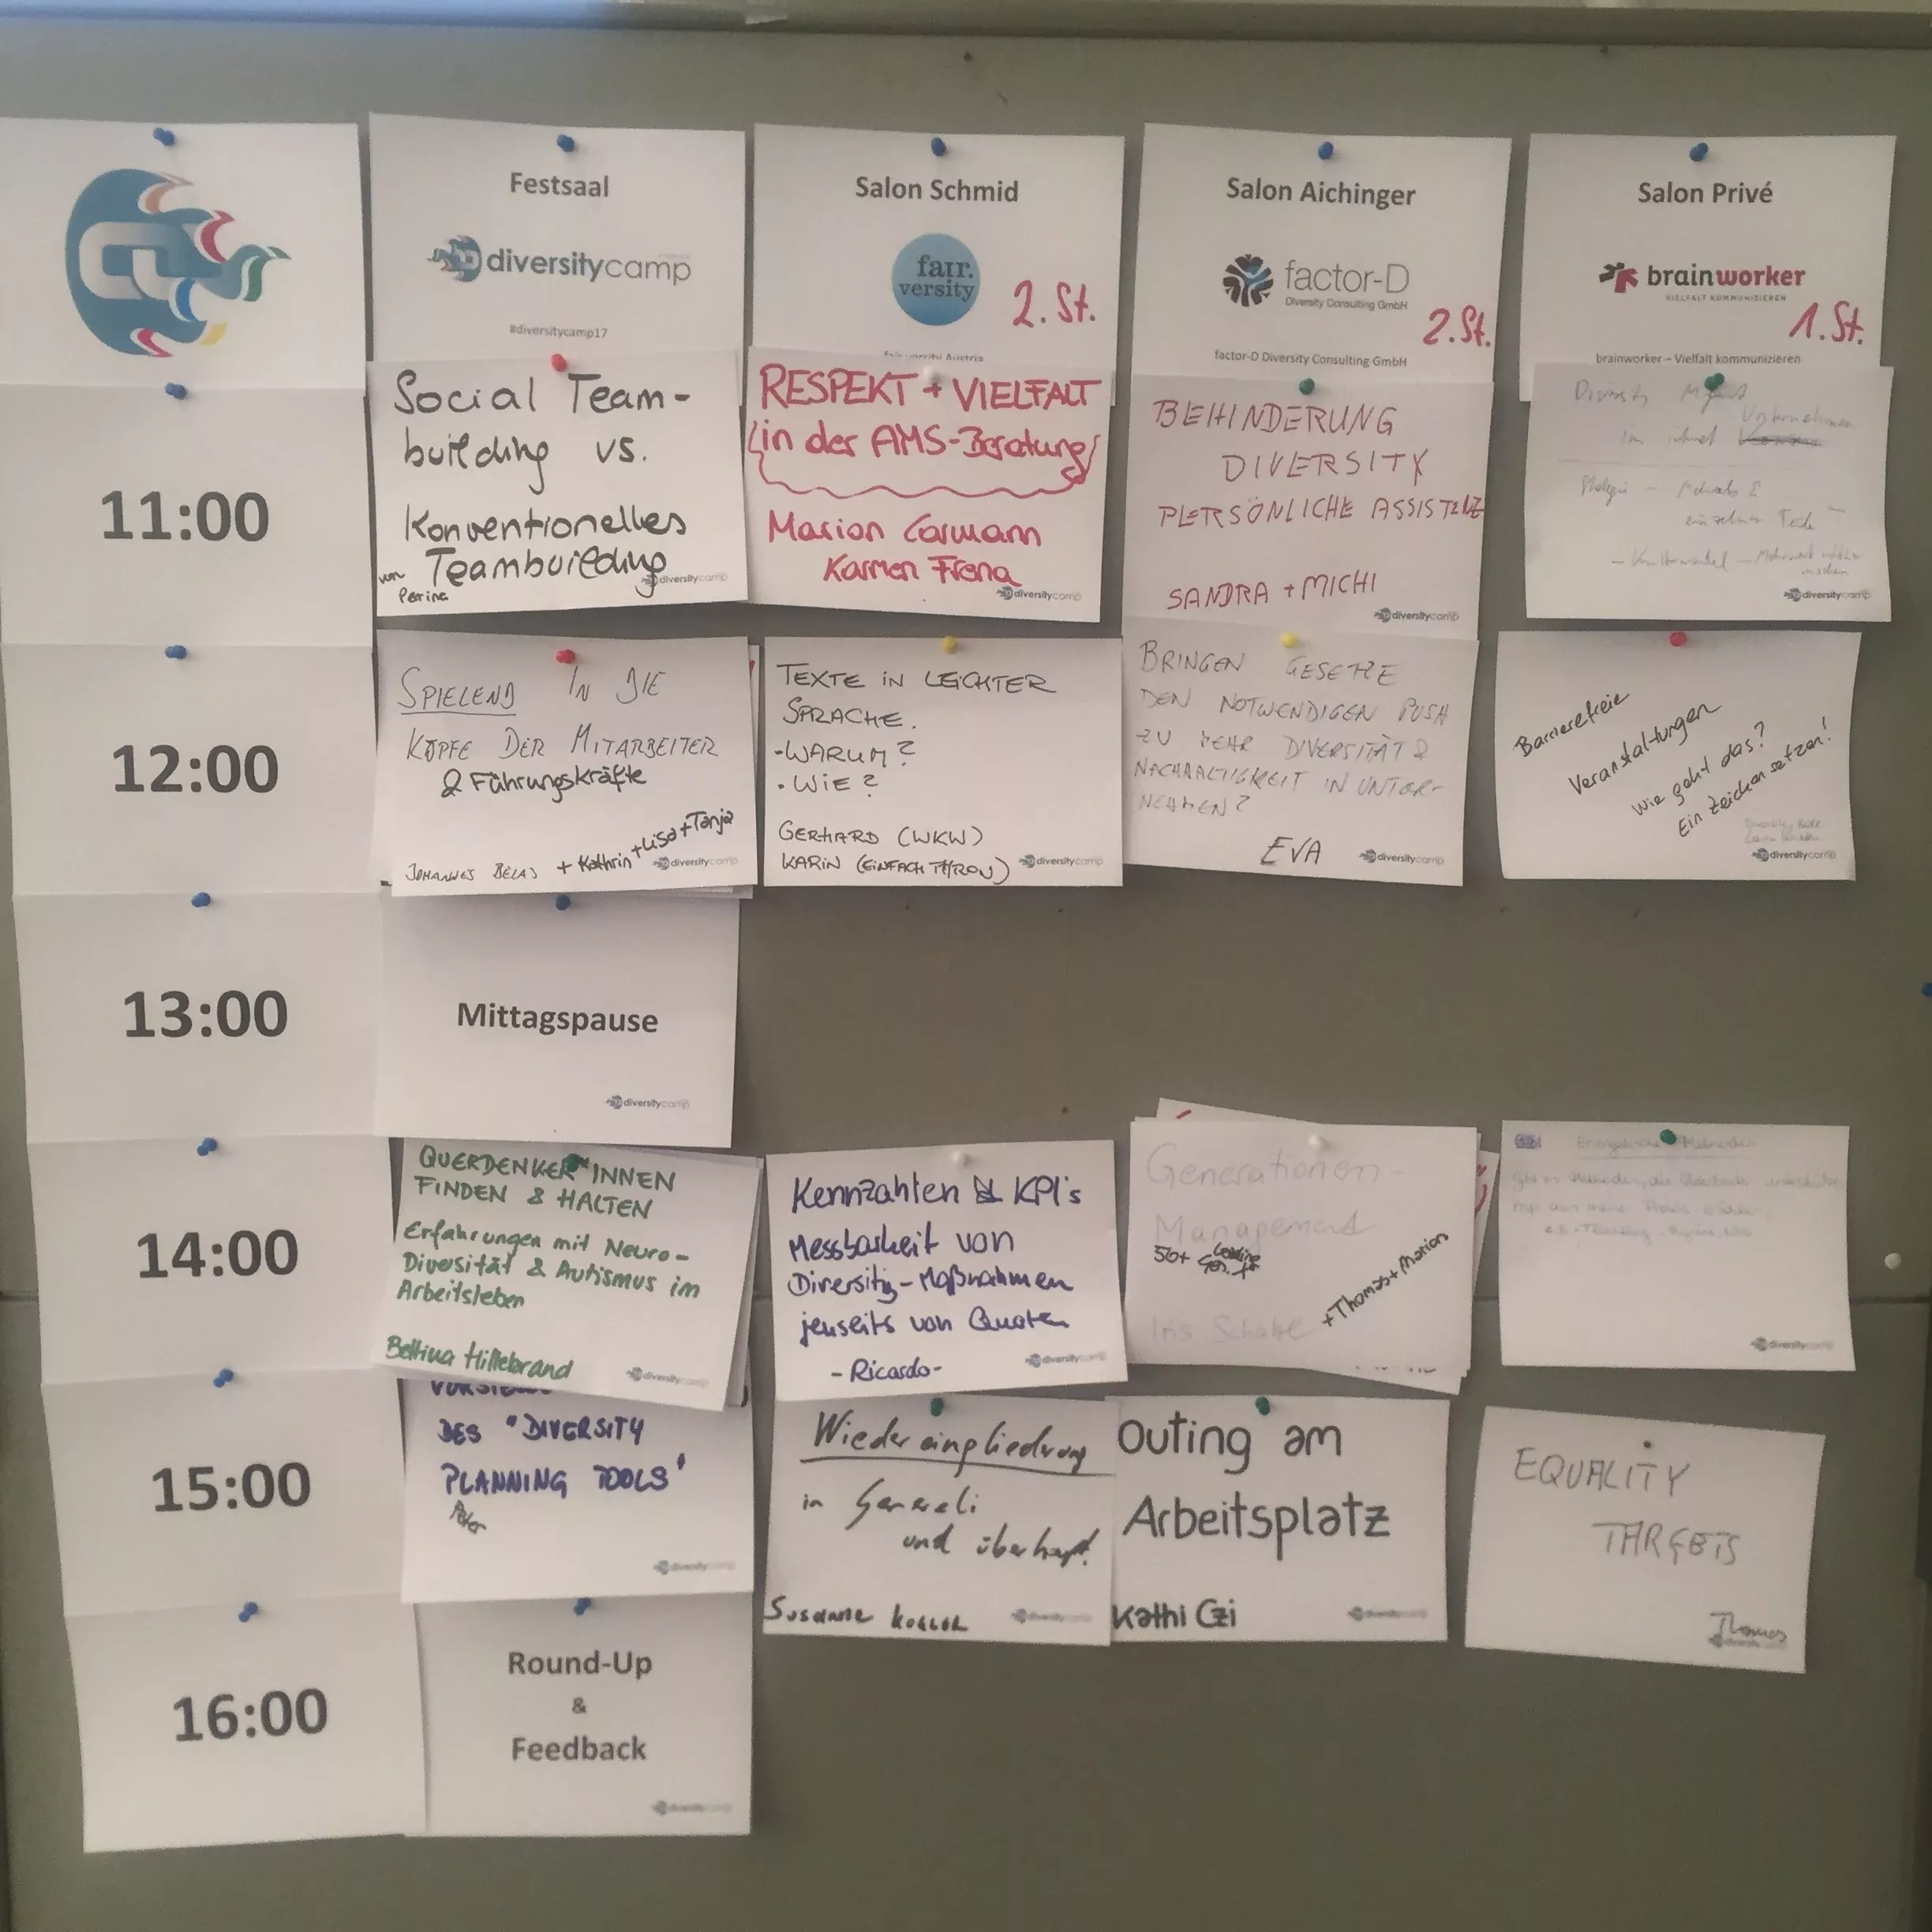 Festsaal
diversitycamp
#diversitycamp17
Salon Schmid
fair.
versity
2. St.
Austria
Salon Aichinger
factor-D
Diversity Consulting GmbH
2. St.
factor-D Diversity Consulting GmbH
Salon Privé
brainworker
VIELFALT KOMMUNIZIEREN
1. St.
brainworker – Vielfalt kommunizieren
11:00
Social Team-
building vs.
Konventionelles
Teambuilding
von
diversitycamp
RESPEKT + VIELFALT
in der AMS-Beratung
Marion Carmann
Karmen Frena
diversitycamp
BEHINDERUNG
DIVERSITY
PERSÖNLICHE ASSISTENZ
SANDRA + MICHI
diversitycamp
im
einzelner
diversitycamp
12:00
SPIELEND IN DIE
KÖPFE DER MITARBEITER
& Führungskräfte
JOHANNES BELAS + Kathrin + Lisa + Tanja
diversitycamp
TEXTE IN LEICHTER
SPRACHE.
- WARUM?
• WIE?
GERHARD (WKW)
KARIN (EINFACH THRON)
diversitycamp
BRINGEN GESETZE
DEN NOTWENDIGEN PUSH
ZU MEHR DIVERSITÄT &
NACHHALTIGKEIT IN UNTER-
NEHMEN?
EVA
diversitycamp
Barrierefreie
Veranstaltungen
Wie geht das?
Ein Zeichen setzen!
diversitycamp
13:00
Mittagspause
diversitycamp
14:00
QUERDENKER*INNEN
FINDEN & HALTEN
Erfahrungen mit Neuro-
Diversität & Autismus im
Arbeitsleben
Bettina Hillebrand
diversitycamp
Kennzahlen & KPI's
Messbarkeit von
Diversity-Maßnahmen
jenseits von Quoten
- Ricardo -
diversitycamp
Generationen-
Management
50+
Iris
+ Thomas + Marion
Methoden
diversitycamp
15:00
DES "DIVERSITY
PLANNING TOOLS"
Peter
diversitycamp
Wiedereingliederung
in Generali
und überhaupt.
Susanne
diversitycamp
Outing am
Arbeitsplatz
Kathi Czi
diversitycamp
EQUALITY
TARGETS
Thomas
diversitycamp
16:00
Round-Up
&
Feedback
diversitycamp